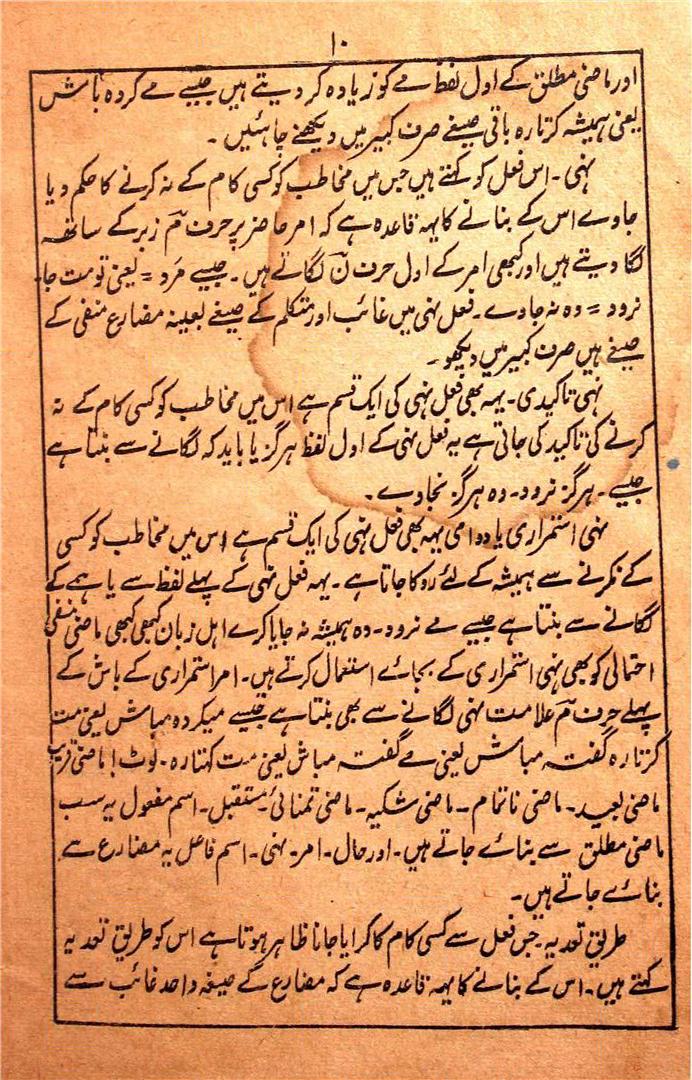 ۱۰
اور ماضی مطلق کے اول لفظ مے کو زیادہ کر دیتے ہیں جیسے مے کردہ باش
یعنی ہمیشہ کرتا رہ باقی صیغے صرف کبیر میں دیکھنے چاہئیں ۔
نہی ۔ اس فعل کو کہتے ہیں جس میں مخاطب کو کسی کام کے نہ کرنے کا حکم دیا
جاوے اس کے بنانے کا یہہ قاعدہ ہے کہ امر حاضر پر حرف مَ زبر کے ساتھہ
لگا دیتے ہیں اور کبھی امر کے اول حرف نَ لگاتے ہیں ۔ جیسے مَرَو = یعنی تو مت جا۔
نرود = وہ نہ جاوے ۔ فعل نہی میں غائب اور متکلم کے صیغے بعینہ مضارع منفی کے
صیغے ہیں صرف کبیر میں دیکھو ۔
نہی تاکیدی ۔ یہہ بھی فعل نہی کی ایک قسم ہے اس میں مخاطب کو کسی کام کے نہ
کرنے کی تاکید کی جاتی ہے یہ فعل نہی کے اول لفظ ہرگز یا باید کہ لگانے سے بنتا ہے
جیسے ۔ ہرگز نرود ۔ وہ ہرگز نجاوے ۔
نہی استمراری یا دوامی یہہ بھی فعل نہی کی ایک قسم ہے اس میں مخاطب کو کسی
کے نکرنے سے ہمیشہ کے لئے روکا جاتا ہے ۔ یہہ فعل نہی کے پہلے لفظ سے یا ہمے کے
لگانے سے بنتا ہے جیسے مے نرود ۔ وہ ہمیشہ نہ جایا کرے اہل زبان کبھی کبھی ماضی منفی
احتمالی کو بھی نہی استمراری کے بجائے استعمال کرتے ہیں ۔ امر استمراری کے باش کے
پہلے حرف مَ علامت نہی لگانے سے بھی بنتا ہے جیسے میکردہ مباش یعنی مت
کرتا رہ گفتہ مباش یعنی مے گفتہ مباش یعنی مت کہتا رہ ۔ نوٹ ا ماضی قریب
ماضی بعید ۔ ماضی ناتمام ۔ ماضی شکیہ ۔ ماضی تمنائی ۔ مستقبل ۔ اسم مفعول یہ سب
ماضی مطلق سے بنائے جاتے ہیں ۔ اور حال ۔ امر ۔ نہی ۔ اسم فاعل یہ مضارع سے
بنائے جاتے ہیں ۔
طریق تعدیہ جس فعل سے کسی کام کا کرایا جانا ظاہر ہوتا ہے اس کو طریق تعدیہ
کہتے ہیں ۔ اس کے بنانے کا یہہ قاعدہ ہے کہ مضارع کے صیغہ واحد غائب سے